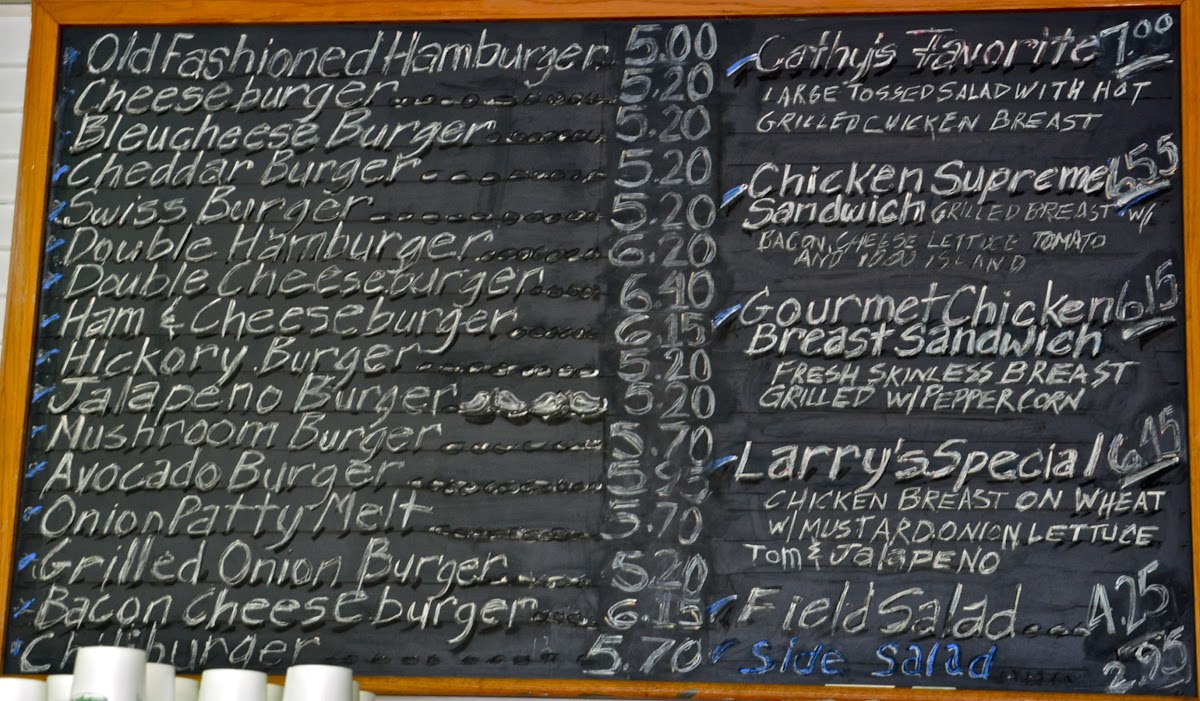 Old Fashioned Hamburger 5.00
Cheeseburger 5.20
Bleucheese Burger 5.20
Cheddar Burger 5.20
Swiss Burger 5.20
Double Hamburger 6.20
Double Cheeseburger 6.40
Ham & Cheeseburger 6.15
Hickory Burger 5.20
Jalapeno Burger 5.20
Mushroom Burger 5.70
Avocado Burger 5.95
Onion Patty Melt 5.70
Grilled Onion Burger 5.20
Bacon Cheeseburger 6.15
Chiliburger 5.70
Cathy's Favorite 7.00
LARGE TOSSED SALAD WITH HOT
GRILLED CHICKEN BREAST
Chicken Supreme 6.55
Sandwich GRILLED BREAST W/
BACON, CHEESE LETTUCE TOMATO
AND 1000 ISLAND
Gourmet Chicken 6.15
Breast Sandwich
FRESH SKINLESS BREAST
GRILLED W/PEPPERCORN
Larry's Special 6.15
CHICKEN BREAST ON WHEAT
W/MUSTARD.ONION LETTUCE
TOM & JALAPENO
Field Salad 4.25
Side Salad 2.95